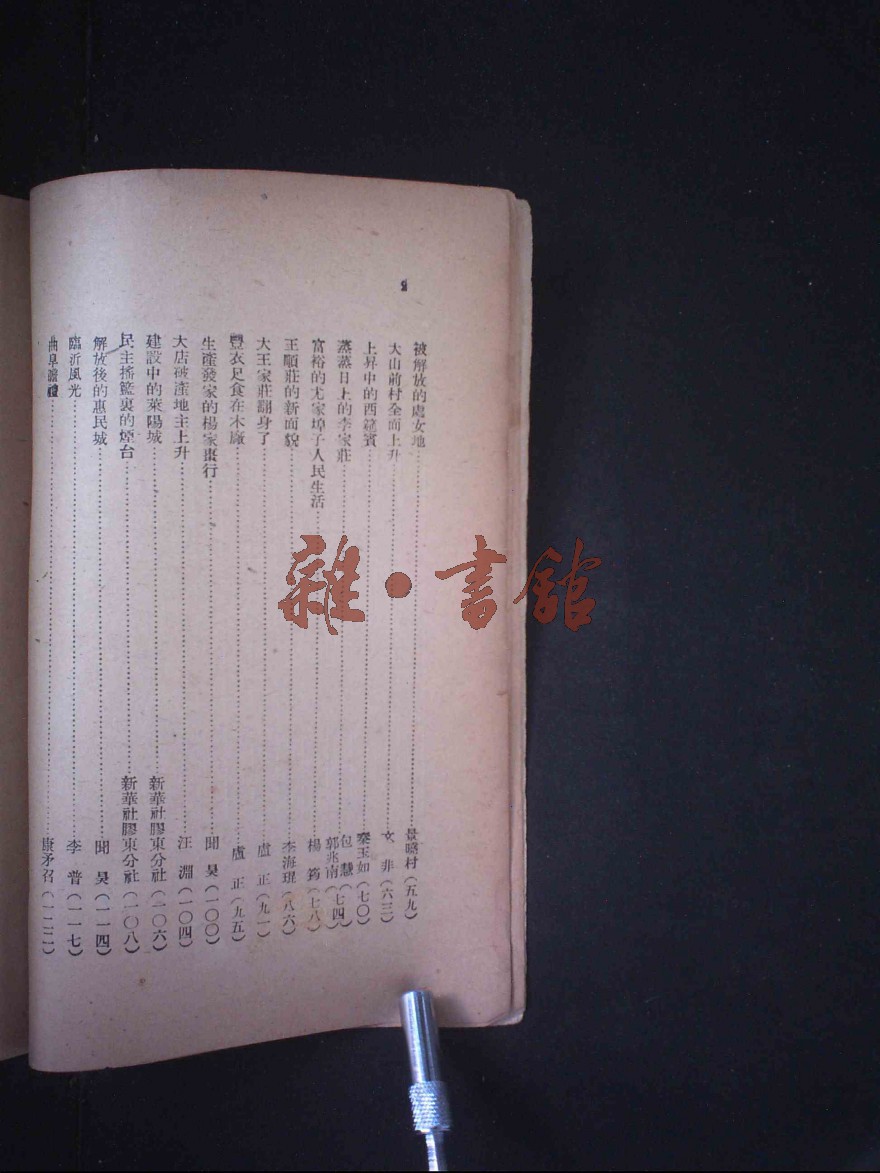 被解放的處女地……景曉村(五九)
大山前村全面上升……文 非(六三)
上昇中的西蔬賓……秦玉如(七〇)
蒸蒸日上的李家莊……包 慧 郭兆南(七四)
富裕的尤家埠子人民生活……楊 筠(七八)
王順莊的新面貌……李海琨(八六)
大王家莊翻身了……盧 正(九一)
豐衣足食在木廠……盧 正(九五)
生產發家的楊家棗行……聞 昊(一〇〇)
大店破產地主上升……汪 淵(一〇四)
建設中的萊陽城……新華社膠東分社(一〇六)
民主搖籃裏的煙台……新華社膠東分社(一〇八)
解放後的惠民城……聞 昊(一一四)
臨沂風光……李 普(一一七)
曲阜瞻禮……康矛召(一二二)
雜·書館